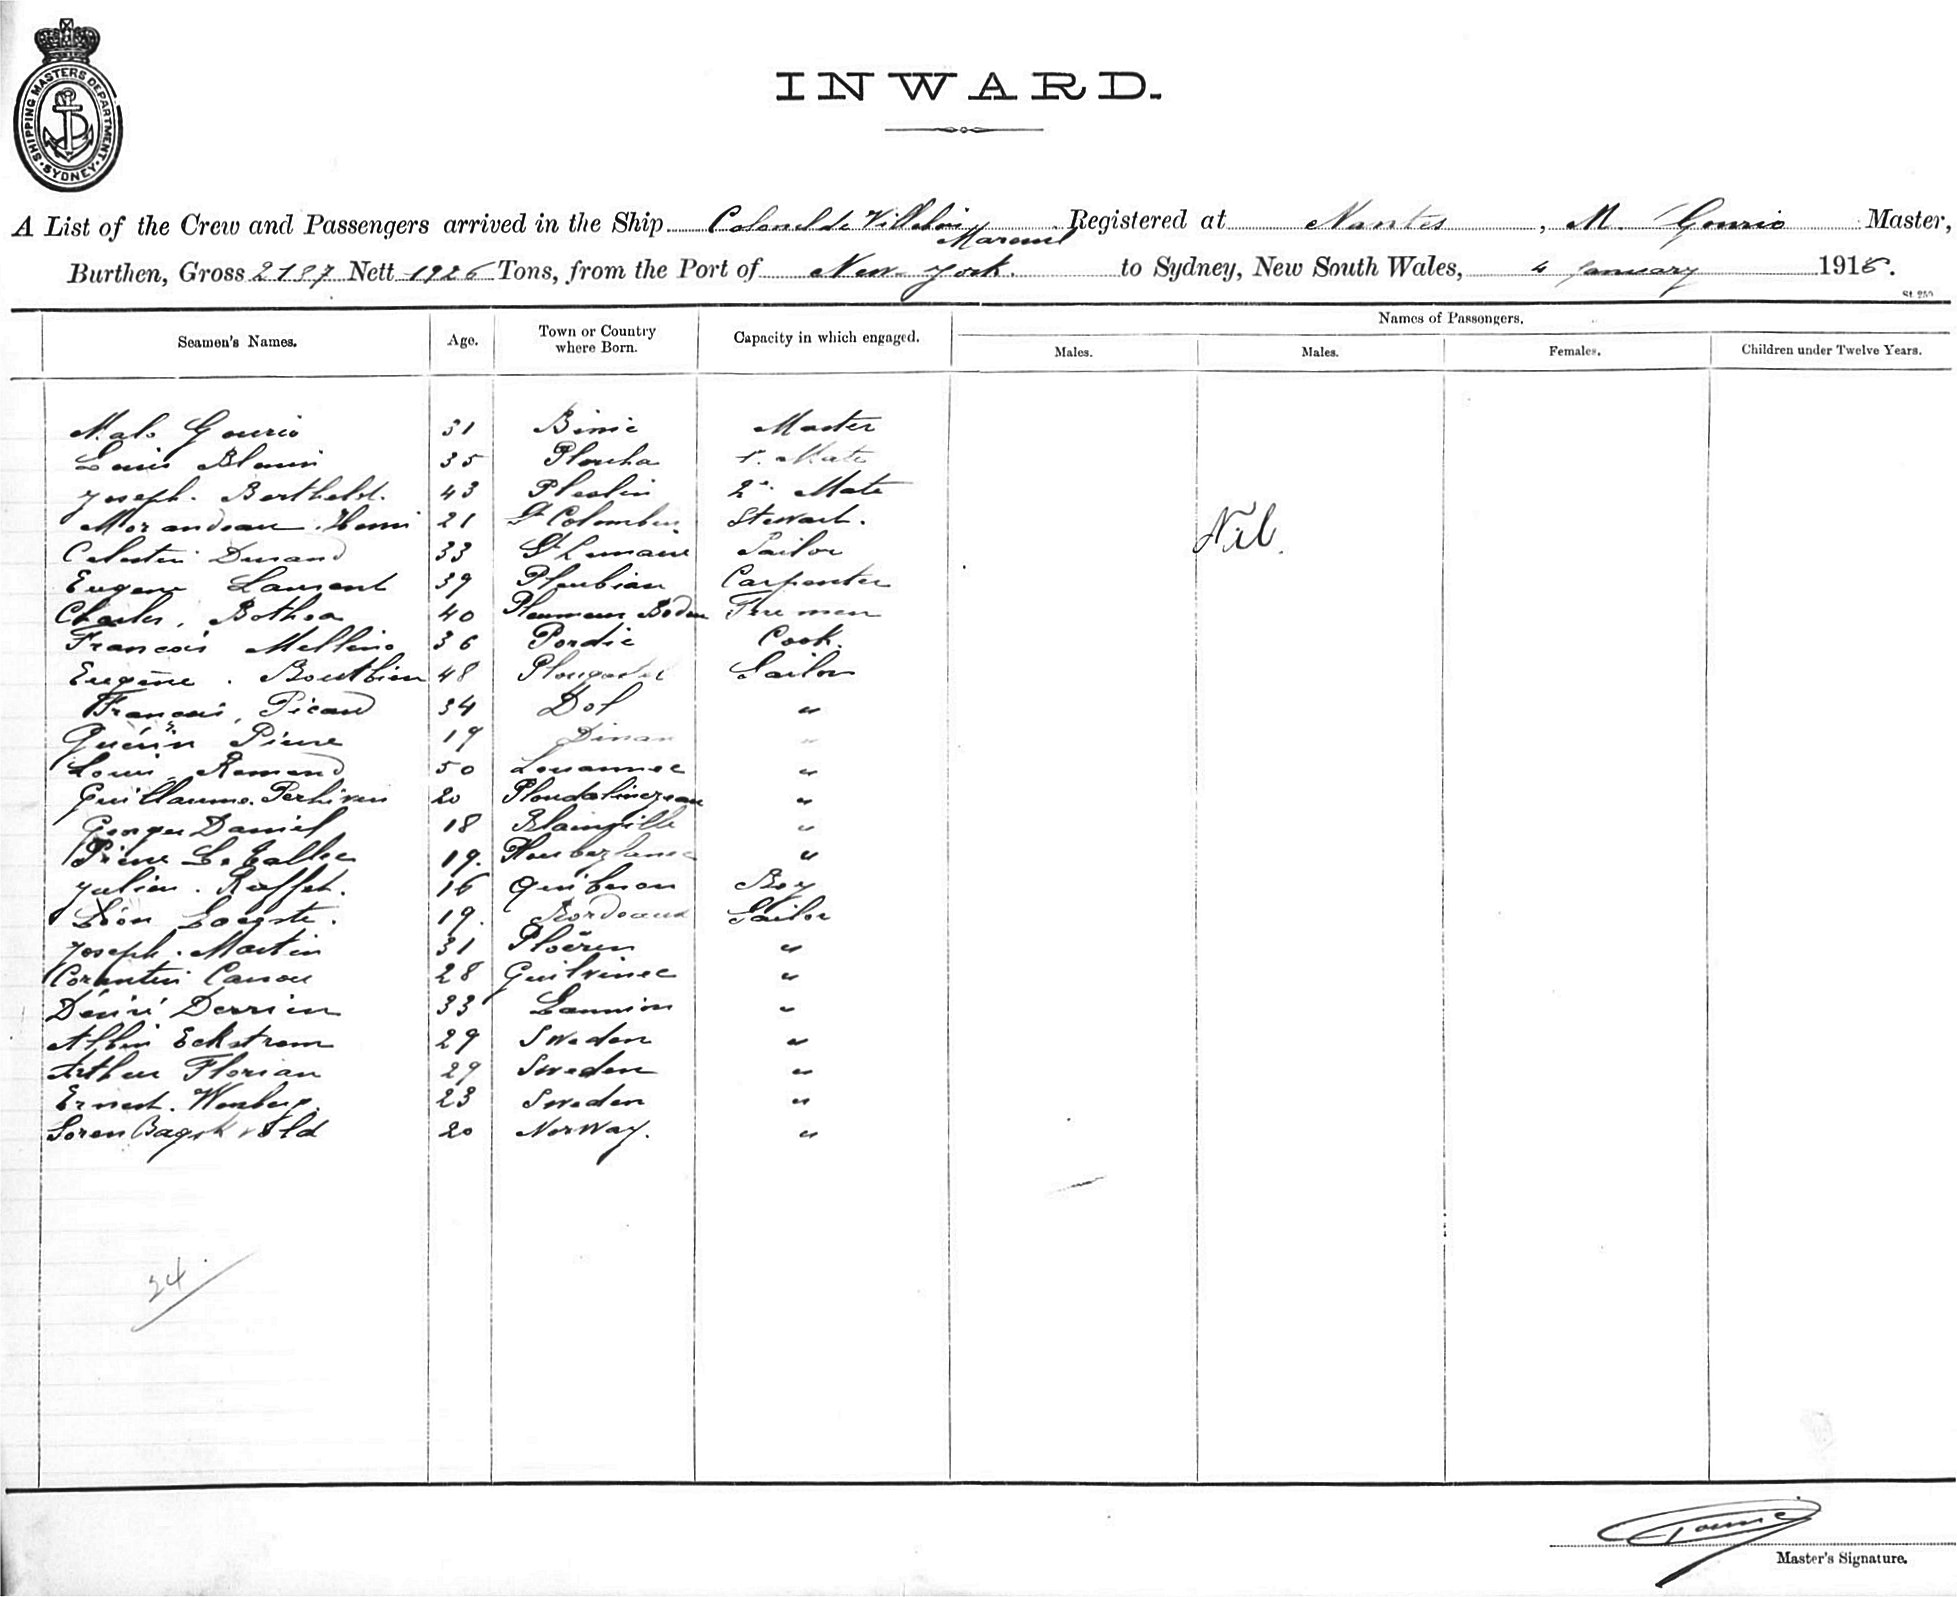 SHIPPING MASTERS DEPARTMENT
SYDNEY
INWARD.
A List of the Crew and Passengers arrived in the Ship Colonel de Villebois Mareuil Registered at Nantes, M. Gourio Master,
Burthen, Gross 2187 Nett 1926 Tons, from the Port of New-York. to Sydney, New South Wales, 4 January 1916.
St. 250
Seamen's Names. Age. Town or Country where Born. Capacity in which engaged. Names of Passengers.
Males. Males. Females. Children under Twelve Years.
Malo Gourio 31 Binic Master
Louis Blouin 35 Plouha 1. Mate
Joseph. Berthelot. 43 Pleslin 2d. Mate
Morandeau. Henri 21 St Colombin Steward.
Nil.
Celestin Durand 33 St Lunaire Sailor
Eugene Laurent 39 Pleubian Carpenter
Charles, Bothoa 40 Pleumeur Bodou
Francois Mellino 36 Pordic Cook.
Eugène. Bouthier 48 Sailor
François, Picard 34 Dol "
Guérin Pierre 19 Dinan "
Louis Remond 50 Louannec "
Guillaume. Perhirin 20 Ploudalmezeau "
Georges Daniel 18 Blainville "
Pierre Le Callec 19. Ploubezlanec "
Julien. Raffet. 16 Quiberon Boy
Léon 19. Bordeaux Sailor
Joseph. Martin 31 Ploëren "
Corentin Canou 28 Guilvinec "
Désiré Derrien 33 Lannion "
Albin Eckstrom 29 Sweden "
Arthur Florian 29 Sweden "
Ernest. Wenberg. 23 Sweden "
Soren 20 Norway. "
24.
Gourio
Master's Signature.